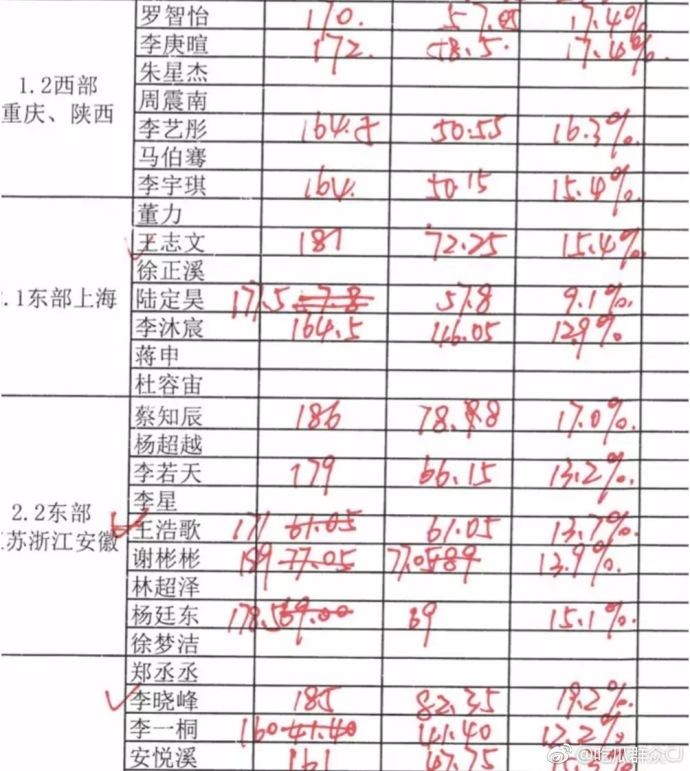 罗智怡 170. 57.05 17.4%
李庚暄 172. 58.5. 17.4%.
朱星杰
1.2西部
周震南
重庆、陕西
李艺彤 164.5 50.55 16.3%.
马伯骞
李宇琪 164. 50.15 15.4%.
董力
王志文 181 72.25 15.4%.
徐正溪
.1东部上海
陆定昊 171.5 57.8 9.1%.
李沐宸 164.5 46.05 12.9%
蒋申
杜容宙
蔡知辰 186 78. 17.0%.
杨超越
李若天 179 66.15 13.2%.
李星
2.2东部
王浩歌 171 61.05 61.05 13.7%.
苏浙江安徽
谢彬彬 77.05 77.05 89 13.9%.
林超泽
杨廷东 178.5 69.00 69 15.1%.
徐梦洁
郑丞丞
李晓峰 185 82.35 19.2%.
李一桐 160 41.40 41.40 12.2%.
安悦溪 161 47.75
@吃瓜群众CJ